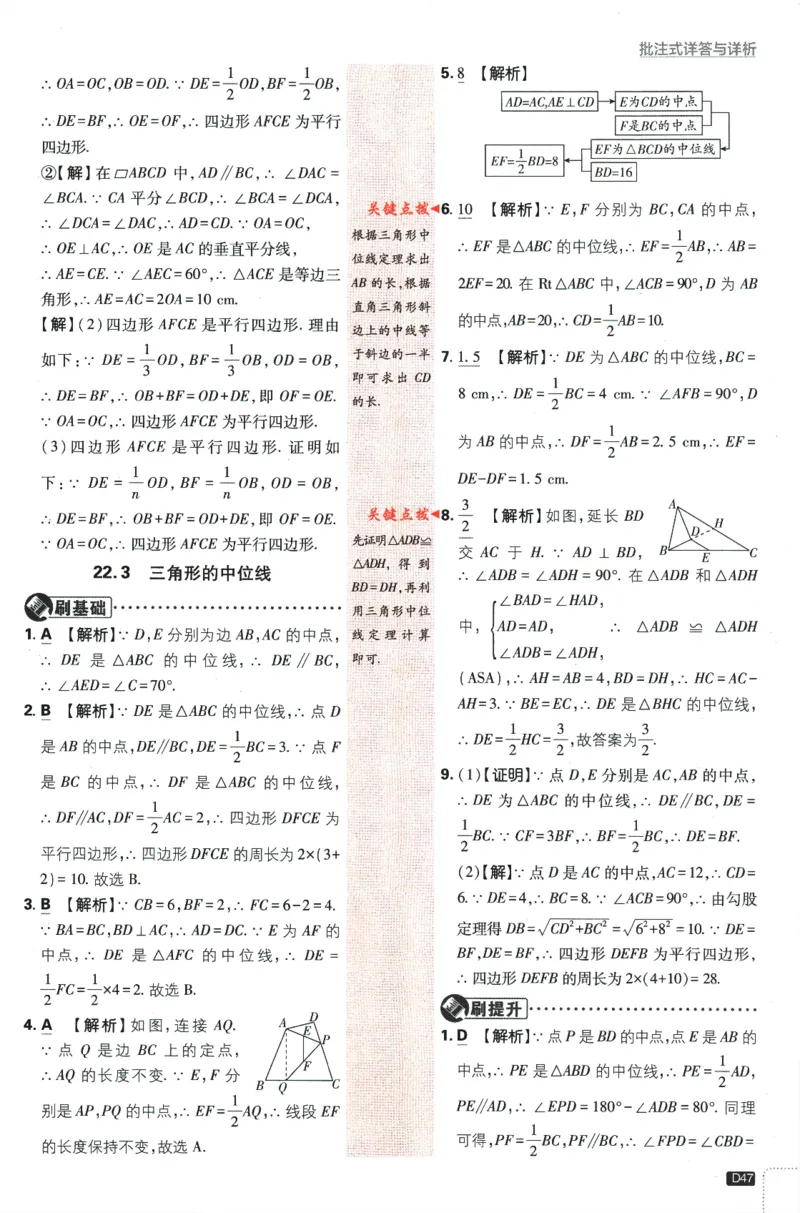 批注式详答与详析
∴ OA=OC,OB=OD.∵ DE=1/2OD,BF=1/2OB,
∴ DE=BF,∴ OE=OF,∴ 四边形 AFCE 为平行
四边形.
②【解】在▱ABCD 中,AD∥BC,∴ ∠DAC=
∠BCA.∵ CA 平分∠BCD,∴ ∠BCA=∠DCA,
∴ ∠DCA=∠DAC,∴ AD=CD.∵ OA=OC,
∴ OE⊥AC,∴ OE 是 AC 的垂直平分线,
∴ AE=CE.∵ ∠AEC=60°,∴ △ACE 是等边三
角形,∴ AE=AC=2OA=10 cm.
【解】(2)四边形 AFCE 是平行四边形. 理由
如下:∵ DE=1/3OD,BF=1/3OB,OD=OB,
∴ DE=BF,∴ OB+BF=OD+DE,即 OF=OE.
∵ OA=OC,∴ 四边形 AFCE 为平行四边形.
(3)四边形 AFCE 是平行四边形. 证明如
下:∵ DE=1/nOD,BF=1/nOB,OD=OB,
∴ DE=BF,∴ OB+BF=OD+DE,即 OF=OE.
∵ OA=OC,∴ 四边形 AFCE 为平行四边形.
22.3 三角形的中位线
刷基础
1. A 【解析】∵ D,E 分别为边 AB,AC 的中点,
∴ DE 是 △ABC 的中位线,∴ DE∥BC,
∴ ∠AED=∠C=70°.
2. B 【解析】∵ DE 是△ABC 的中位线,∴ 点 D
是 AB 的中点,DE∥BC,DE=1/2BC=3.∵ 点 F
是 BC 的中点,∴ DF 是 △ABC 的中位线,
∴ DF∥AC,DF=1/2AC=2,∴ 四边形 DFCE 为
平行四边形,∴ 四边形 DFCE 的周长为 2×(3+
2)=10. 故选 B.
3. B 【解析】∵ CB=6,BF=2,∴ FC=6-2=4.
∵ BA=BC,BD⊥AC,∴ AD=DC.∵ E 为 AF 的
中点,∴ DE 是 △AFC 的中位线,∴ DE=
1/2FC=1/2×4=2. 故选 B.
4. A 【解析】如图,连接 AQ.
∵ 点 Q 是边 BC 上的定点,
∴ AQ 的长度不变.∵ E,F 分
别是 AP,PQ 的中点,∴ EF=1/2AQ,∴ 线段 EF
的长度保持不变,故选 A.
A D E P F B Q C
关键点拨
根据三角形中
位线定理求出
AB 的长,根据
直角三角形斜
边上的中线等
于斜边的一半
即可求出 CD
的长.
关键点拨
先证明△ADB≌
△ADH,得到
BD=DH,再利
用三角形中位
线定理计算
即可.
5. 8 【解析】
AD=AC,AE⊥CD
E为CD的中点
F是BC的中点
EF为△BCD的中位线
EF=1/2BD=8
BD=16
6. 10 【解析】∵ E,F 分别为 BC,CA 的中点,
∴ EF 是△ABC 的中位线,∴ EF=1/2AB,∴ AB=
2EF=20. 在 Rt△ABC 中,∠ACB=90°,D 为 AB
的中点,AB=20,∴ CD=1/2AB=10.
7. 1.5 【解析】∵ DE 为△ABC 的中位线,BC=
8 cm,∴ DE=1/2BC=4 cm.∵ ∠AFB=90°,D
为 AB 的中点,∴ DF=1/2AB=2.5 cm,∴ EF=
DE-DF=1.5 cm.
8. 3/2 【解析】如图,延长 BD
交 AC 于 H.∵ AD⊥BD,
∴ ∠ADB=∠ADH=90°. 在△ADB 和△ADH
中,{∠BAD=∠HAD,
AD=AD,
∠ADB=∠ADH,
∴ △ADB≌△ADH
(ASA),∴ AH=AB=4,BD=DH,∴ HC=AC-
AH=3.∵ BE=EC,∴ DE 是△BHC 的中位线,
∴ DE=1/2HC=3/2,故答案为3/2.
A H D B E C
9. (1)【证明】∵ 点 D,E 分别是 AC,AB 的中点,
∴ DE 为△ABC 的中位线,∴ DE∥BC,DE=
1/2BC.∵ CF=3BF,∴ BF=1/2BC,∴ DE=BF.
(2)【解】∵ 点 D 是 AC 的中点,AC=12,∴ CD=
6.∵ DE=4,∴ BC=8.∵ ∠ACB=90°,∴ 由勾股
定理得 DB=√(CD²+BC²)=√(6²+8²)=10.∵ DE=
BF,DE=BF,∴ 四边形 DEFB 为平行四边形,
∴ 四边形 DEFB 的周长为 2×(4+10)=28.
刷提升
1. D 【解析】∵ 点 P 是 BD 的中点,点 E 是 AB 的
中点,∴ PE 是△ABD 的中位线,∴ PE=1/2AD,
PE∥AD,∴ ∠EPD=180°-∠ADB=80°. 同理
可得,PF=1/2BC,PF∥BC,∴ ∠FPD=∠CBD=
D47